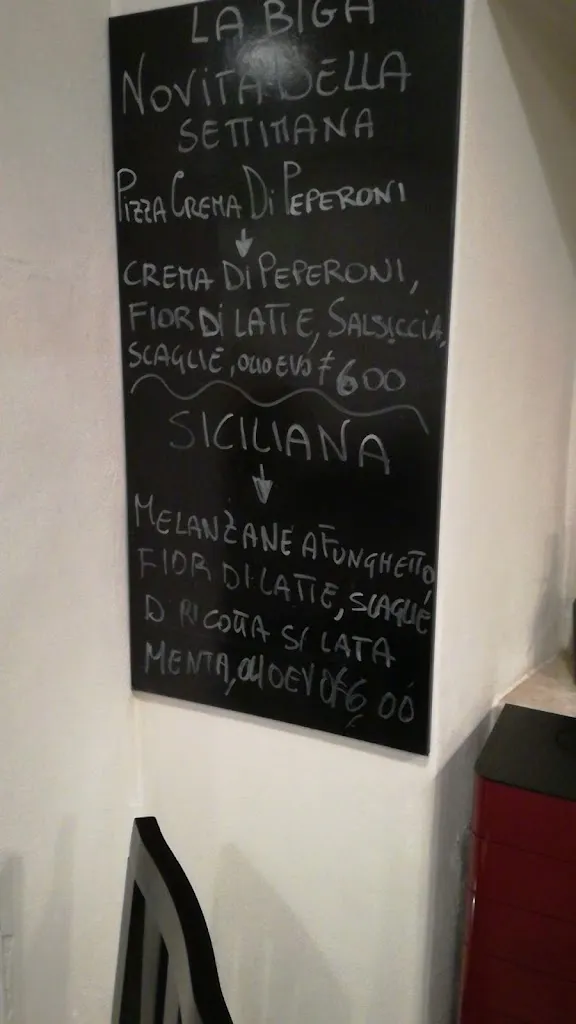 LA BIGA
NOVITA DELLA
SETTIMANA
PIZZA CREMA DI PEPERONI
CREMA DI PEPERONI,
FIOR DI LATTE, SALSICCIA,
SCAGLIE, OLIO EVO € 6 00
SICILIANA
MELANZANE A FUNGHETTO,
FIOR DI LATTE, SCAGLIE
DI RICOTTA SALATA
MENTA, OLIO EVO € 6,00